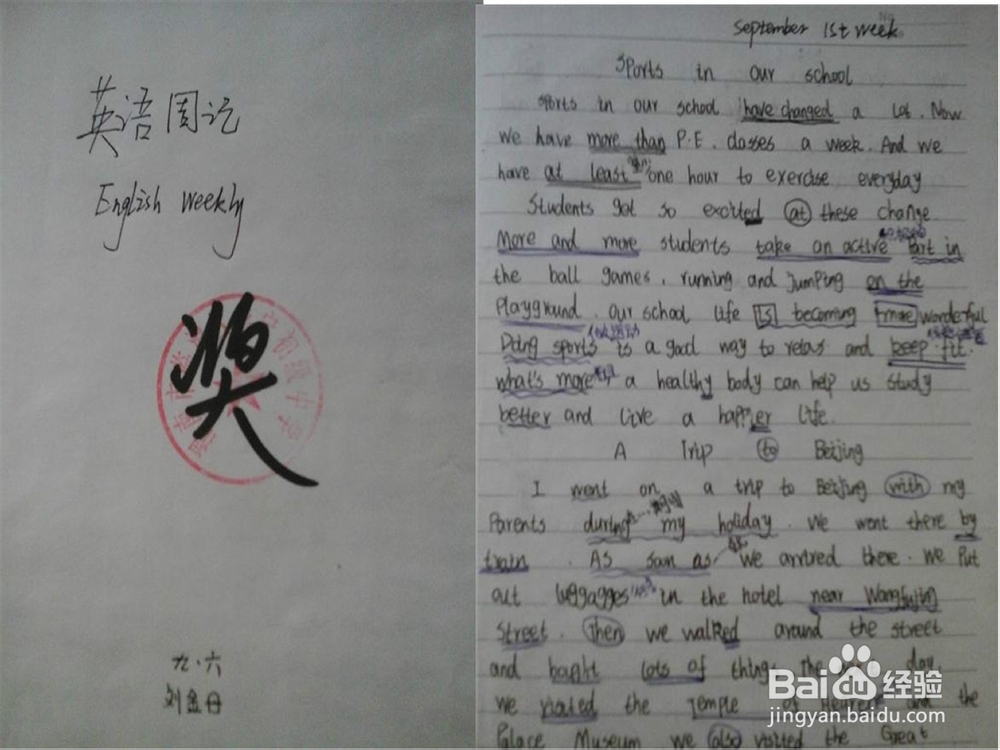 英语周记
English weekly
奖
九.六
刘金丹
September 1st week
Sports in our school
Sports in our school have changed a lot. Now
we have more than P.E. classes a week. And we
have at least one hour to exercise everyday
Students got so excited at these change.
More and more students take an active part in
the ball games, running and jumping on the
playground. our school life is becoming more wonderful
Doing sports is a good way to relax and keep fit.
what's more, a healthy body can help us study
better and live a happier life.
A Trip to Beijing
I went on a trip to Beijing with my
parents during my holiday. We went there by
train. As soon as we arrived there. we put
out luggages in the hotel near Wangfujing
street. Then we walked around the street
and bought lots of things. The day,
we visited the Temple of Heaven and the
Palace Museum we also visited the Great
Baidu经验
jingyan.baidu.com